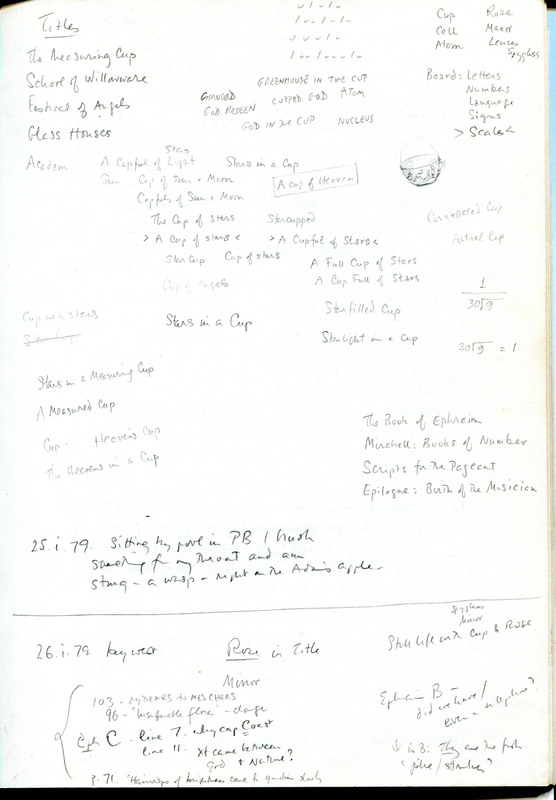 Titles
Cup Rose
Cell Manor
Atom Lenses
Spyglass
The Measuring Cup
School of Willowware
Festival of Angels
Glass Houses
GREENHOUSE IN THE CUP
CHANGED CUPPED GOD ATOM
GOD RESEEN
GOD IN THE CUP NUCLEUS
Board: Letters
Numbers
Language
Signs
> Scales <
Stars
Academ A Cupful of Light Stars in a Cup
Sun Cup of Sun + Moon
A cup of Heaven
Cupfuls of Sun + Moon
The Cup of Stars Starcupped
Constellated Cup
> A Cup of Stars < > A Cupful of Stars <
Astral Cup
Star Cup Cup of Stars
A Full Cup of Stars
Cup of Angels
A Cup Full of Stars
1
30√9
Stars in a Cup
Starfilled Cup
Star Cup
Starlight in a Cup
30√9 = 1
Stars in a Measuring Cup
A Measured Cup
Cup. Heaven's Cup
The Heavens in a Cup
The Book of Ephraim
Mirabell: Books of Number
Scripts for the Pageant
Epilogue: Birth of the Musician
25.i.79. Sitting by pool in PB I brush
something from my throat and am
stung – a wasp – right on the Adam's apple.
26.i.79 Key West Rose in Title
Spyglass
Mirror
Still life with Cup & Rose
Mirror
103 - MY DEARS TO MES CHERS
96 - - change
Eph C - line 7. why cap Coast
line 11. Xt came between
God + Nature?
Ephraim B -
did we have /
even
↓ in B: They are the first
p. 71.